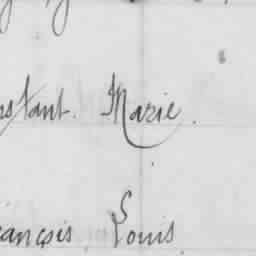 rstant. Marie.
rançois Louis